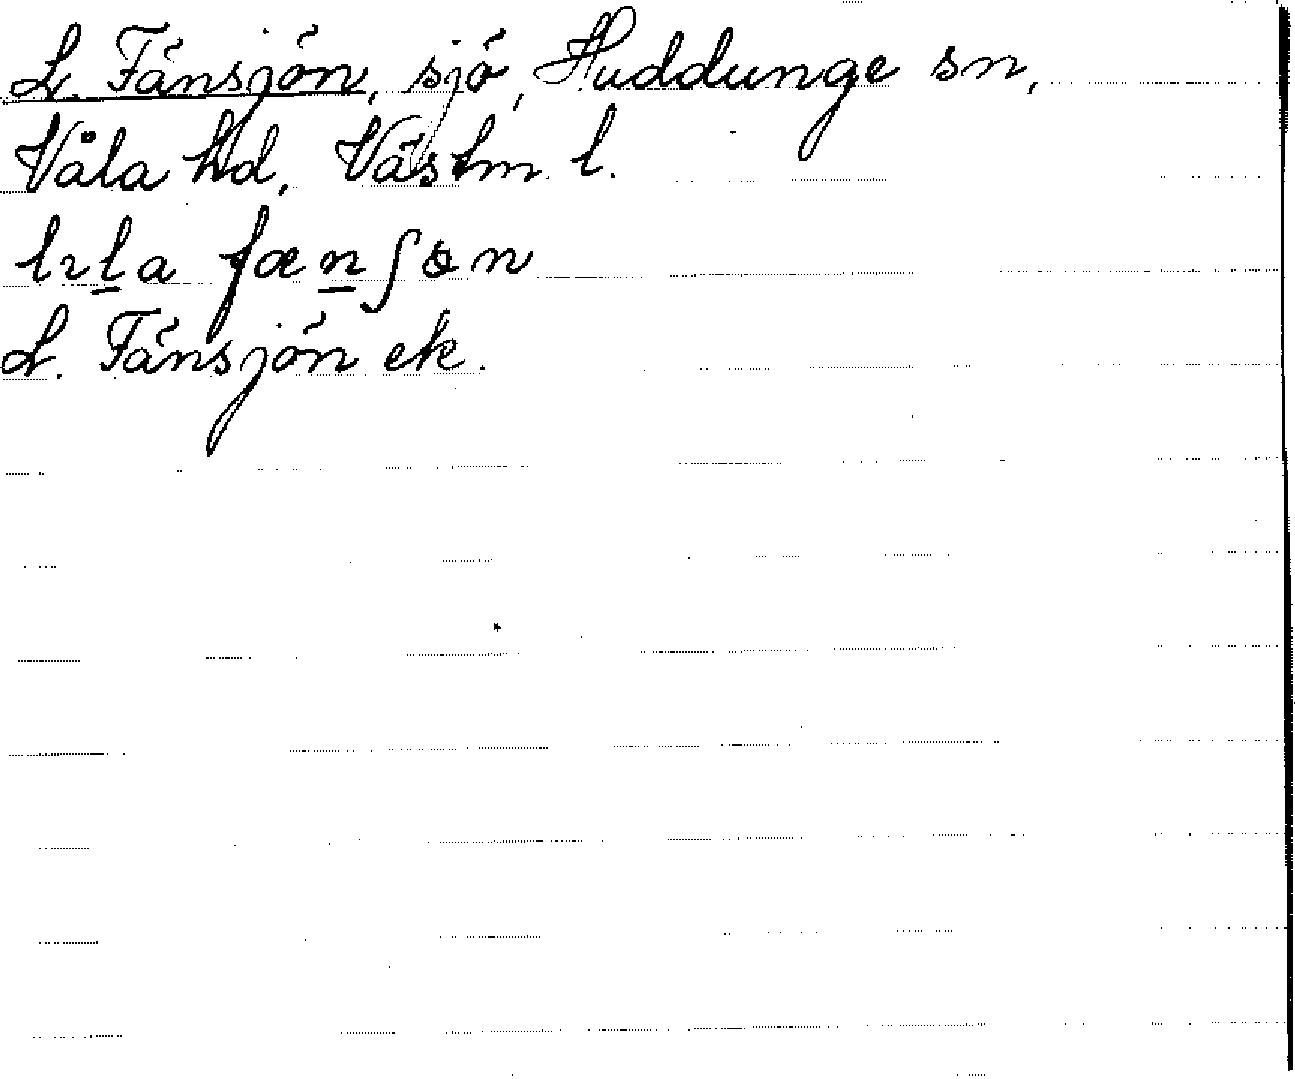 L. Fänsjön, sjö, Huddunge sn,
Våla hd, Västm. l.
lıla fænʃɵn
L. Fänsjön ek.